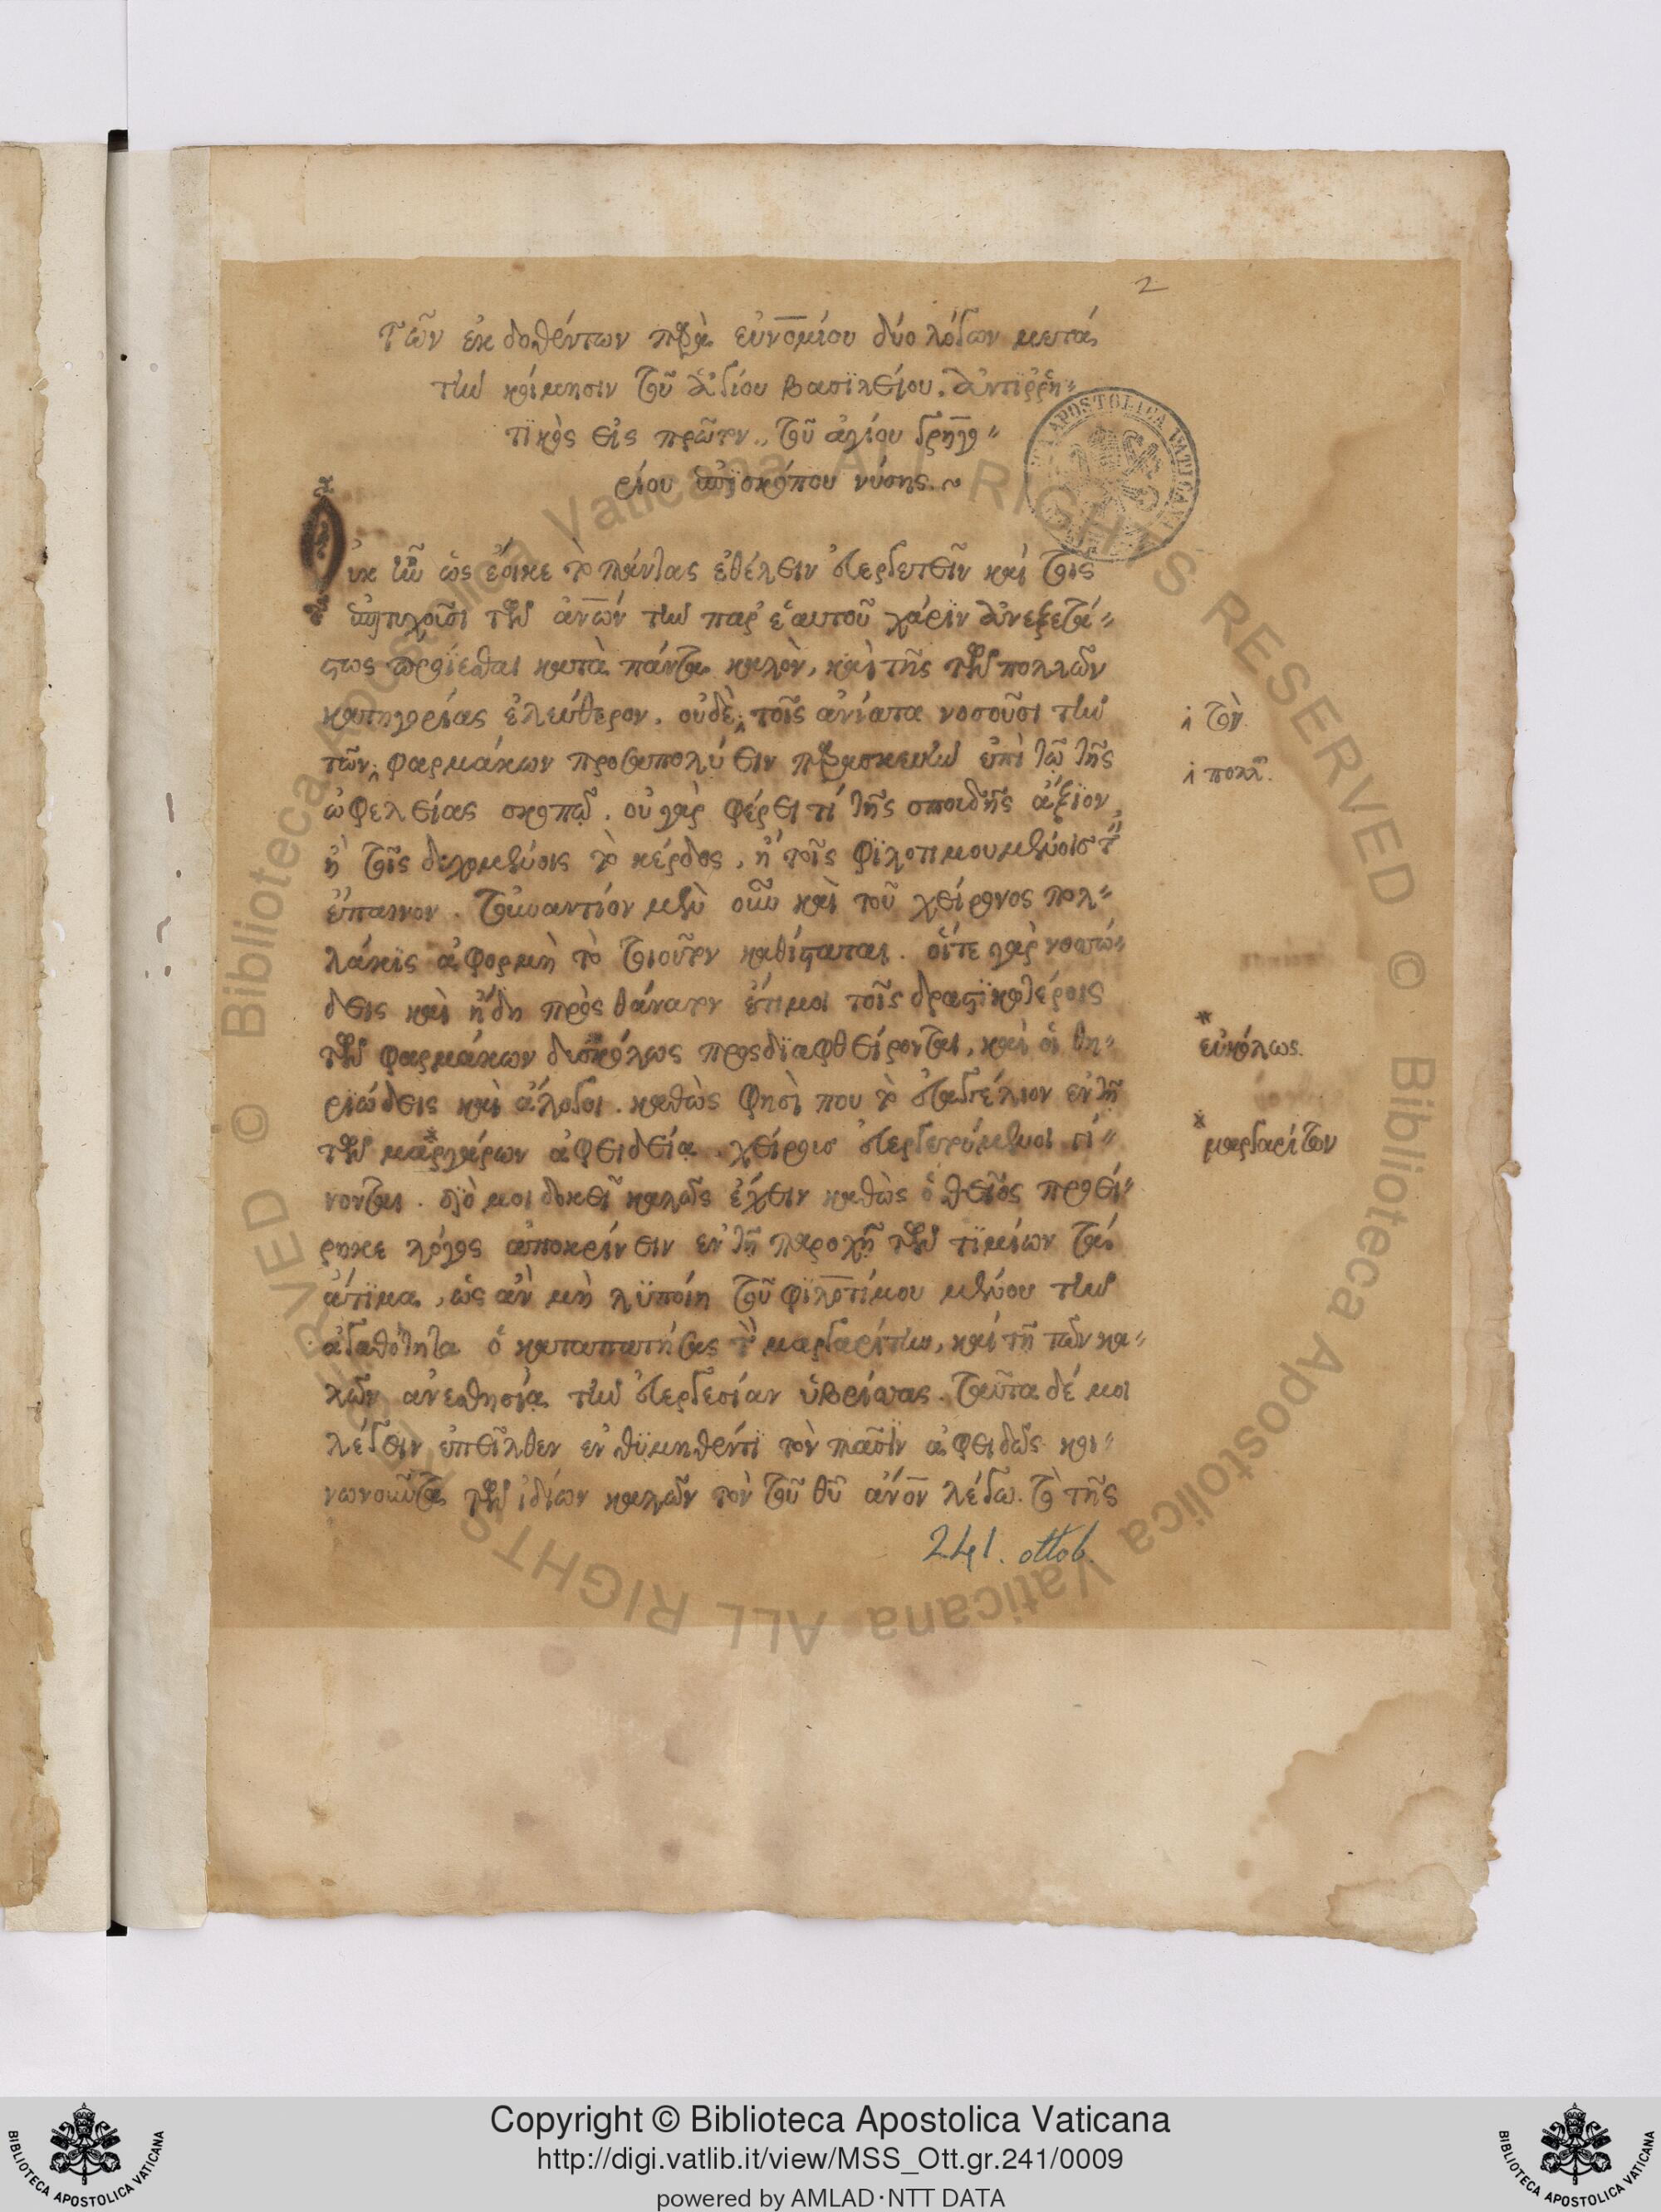 2
τῶν ἐκδοθέντων παρὰ εὐνομίου δύο λόγων μετὰ
τὴν κοίμησιν τοῦ ἁγίου βασϊλείου. ἀντιρρη
τϊκὸς εἰς πρῶτον. τοῦ ἁγίου γρηγο
ρίου ἐπϊσκόπου νύσης.
Οὐκ ἦν ὡς ἔοικε τὸ πάντας ἐθέλειν εὐεργετεῖν καὶ τοῖς
ἐπιτυχοῦσι τῶν ἀνων τὴν παρ' ἑαυτοῦ χάρϊν ἀνεξετά
στως προΐεσθαι κατὰ πάντα καλὸν, καὶ τῆς τῶν πολλῶν
κατηγορίας ἐλεύθερον. οὐδὲ τοῖς ἀνίατα νοσοῦσι τὴν
τῶν φαρμάκων προσαπολύειν παρασκευὴν ἐπὶ τῶ τῆς
ὠφελείας σκοπῷ. οὐ γὰρ φέρει τί τῆς σπουδῆς ἄξϊον
ἢ τοῖς δεχομένοις τὸ κέρδος, ἢ τοῖς φϊλοτιμουμένοις τ
ἔπαινον. τοὐναντίον μὲν οὖν καὶ τοῦ χείρονος πολ
λάκϊς ἀφορμὴ τὸ τοιοῦτον καθίσταται. οἵτε γὰρ νοσώ
δεις καὶ ἤδη πρὸς θάνατον ἕτιμοι τοῖς δραστϊκωτέροις
τῶν φαρμάκων δυσκόλως προσδϊαφθείρονται, καὶ οἱ θη
ρϊώδεις καὶ ἄλογοι. καθὼς φησὶ που τὸ εὐαγγέλιον ἐν τῆ
τῶν μαργάρων ἀφειδείᾳ. χείρους εὐεργετούμενοι γί
νονται. διό μοι δοκεῖ καλῶς ἔχειν καθὼς ὁ θεῖος προεί
ρηκε λόγος ἀποκρίνειν ἐν τῇ παροχῇ τῶν τϊμίων τὰ
ἄτϊμα, ὡς ἂν μὴ λϋποίη τοῦ φϊλοτίμου μένου τὴν
ἀγαθότητα ὁ καταπατήσας τ μαργαρίτην, καὶ τῇ τῶν κα
λῶν ἀνεσθησίᾳ τὴν εὐεργεσίαν ὑβρίσας. ταῦτα δέ μοι
λέγειν ἐπεῖλθεν ἐνθϋμηθέντϊ τὸν πᾶσϊν ἀφειδῶς κοι
νωνοῦντα τῶν ἰδίων καλῶν τὸν τοῦ θυ ἄνον λέγω. τὸ τῆς
τὸν
πολλ
εὐκόλως.
μαργαρίτων
241. ottob.
Copyright © Biblioteca Apostolica Vaticana
http://digi.vatlib.it/view/MSS_Ott.gr.241/0009
powered by AMLAD·NTT DATA
BIBLIOTECA APOSTOLICA VATICANA
BIBLIOTECA APOSTOLICA VATICANA
© Biblioteca Apostolica Vaticana ALL RIGHTS RESERVED © Biblioteca Apostolica Vaticana ALL RIGHTS RESERVED